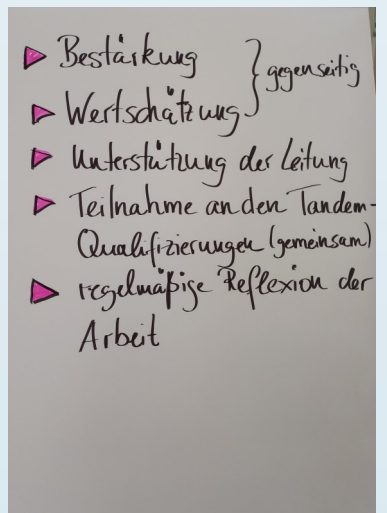 Bestärkung
Wertschätzung } gegenseitig
Unterstützung der Leitung
Teilnahme an den Tandem-
Qualifizierungen (gemeinsam)
regelmäßige Reflexion der
Arbeit